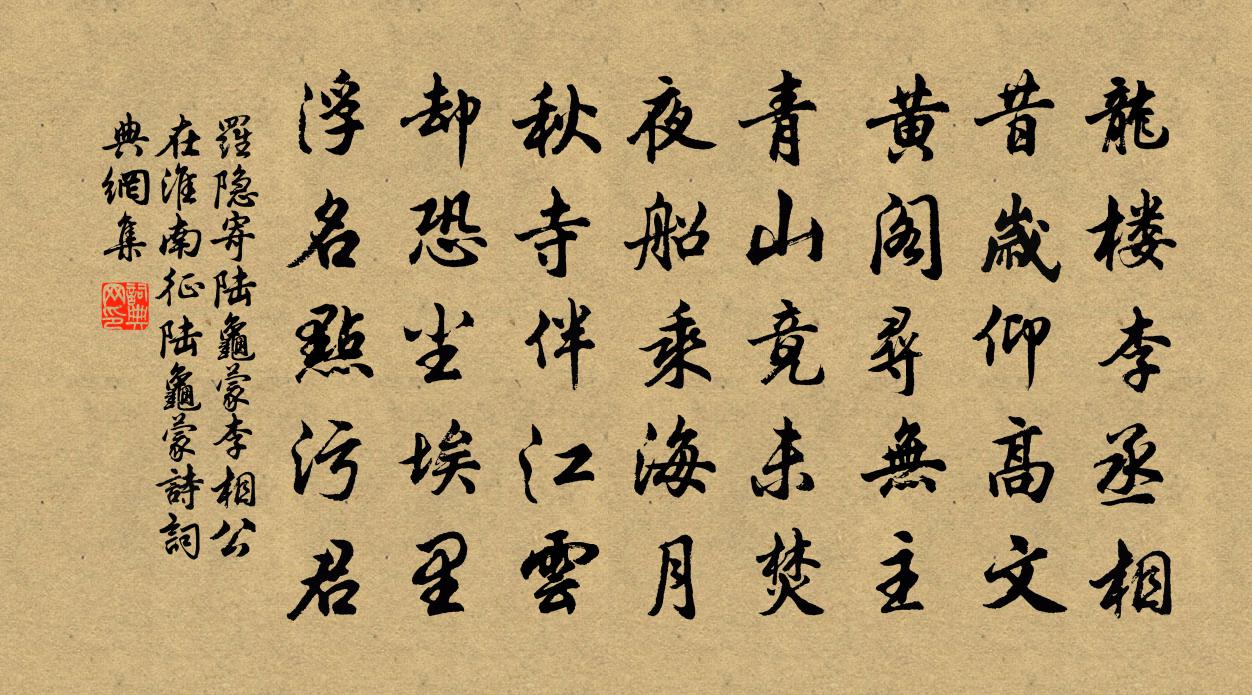 龍楼李丞相
昔歳仰高文
黄阁尋無主
青山竟未焚
夜船乘海月
秋寺伴江雲
却恐尘埃里
浮名點污君
羅隐寄陆龜蒙李相公
在淮南征陆龜蒙詩詞
典網集
詞典
网印